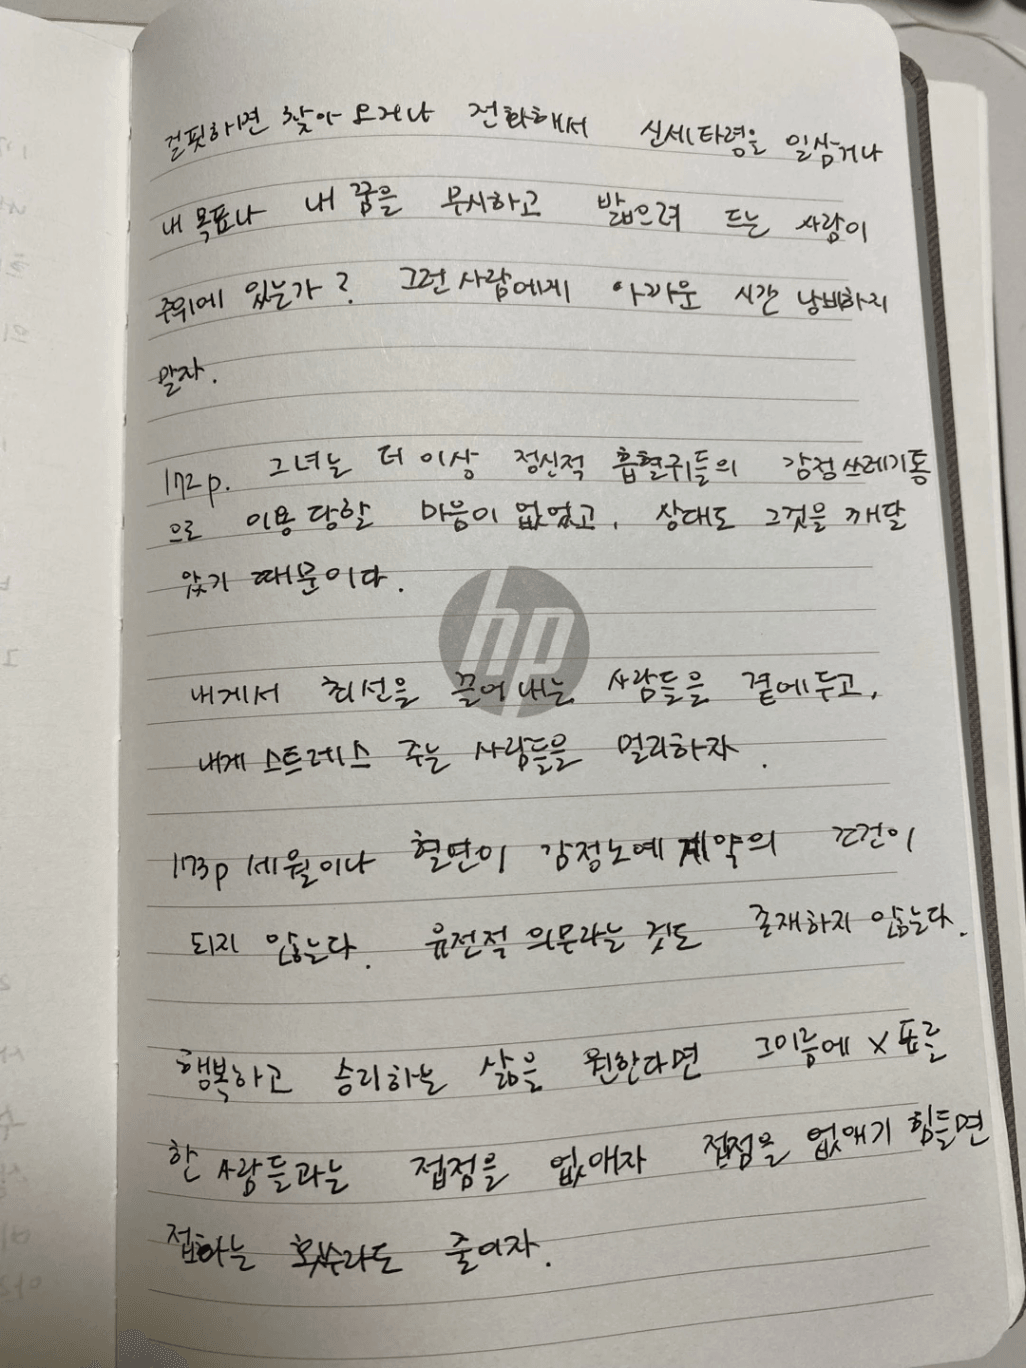 걸핏하면 찾아 오거나 전화해서 신세타령을 일삼거나
내 목표나 내 꿈을 무시하고 밟으려 드는 사람이
주위에 있는가? 그런 사람에게 아까운 시간 낭비하지
말자.
172p. 그녀는 더 이상 정신적 흡혈귀들의 감정쓰레기통
으로 이용 당할 마음이 없었고, 상대도 그것을 깨달
았기 때문이다.
hp
내게서 최선을 끌어 내는 사람들을 곁에 두고,
내게 스트레스 주는 사람들을 멀리하자.
173p 세월이나 혈연이 감정노예 계약의 조건이
되지 않는다. 유전적 의무라는 것도 존재하지 않는다.
행복하고 승리하는 삶을 원한다면 그이름에 X표를
한 사람들과는 접점을 없애자 접점을 없애기 힘들면
접하는 횟수라도 줄이자.